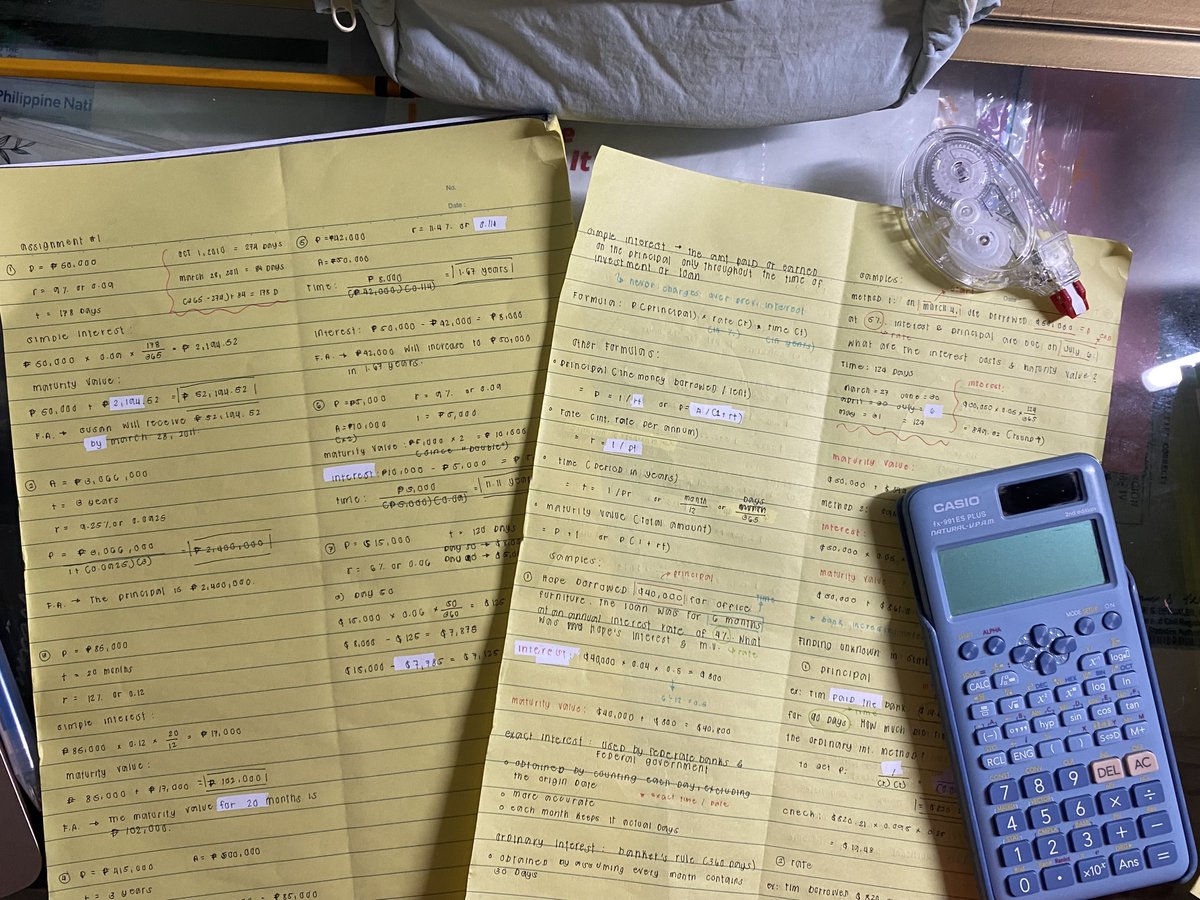 Philippine Nati
It
No.
Date:
assignment #1
① P = ₱50,000
r = 9% or 0.09
t = 178 days
Oct 1, 2010 = 274 days
march 28, 2011 = 84 days
(365 - 274) + 84 = 178 D
simple interest:
₱50,000 × 0.09 × 178/365 = ₱2,194.52
maturity value:
₱50,000 + ₱2,194.52 = ₱52,194.52
F.A. → susan will receive ₱52,194.52
by march 28, 2011.
② A = ₱3,066,000
t = 3 years
r = 9.25% or 0.0925
P = ₱3,066,000 / 1+(0.0925)(3) = ₱2,400,000
F.A. → The principal is ₱2,400,000.
③ P = ₱85,000
t = 20 months
r = 12% or 0.12
simple interest:
₱85,000 × 0.12 × 20/12 = ₱17,000
maturity value:
₱85,000 + ₱17,000 = ₱102,000
F.A. → the maturity value for 20 months is
₱102,000.
④ P = ₱415,000
A = ₱500,000
t = 3 years
₱85,000
⑤ P = ₱42,000
r = 11.4% or 0.114
A = ₱50,000
time: ₱8,000 / (₱42,000)(0.114) = 1.67 years
interest: ₱50,000 - ₱42,000 = ₱8,000
F.A. → ₱42,000 will increase to ₱50,000
in 1.67 years.
⑥ P = ₱5,000
r = 9% or 0.09
A = ₱10,000
I = ₱5,000
(x2)
maturity value: ₱5,000 × 2 = ₱10,000
(since "double")
interest: ₱10,000 - ₱5,000 = ₱5
time: ₱5,000 / (₱5,000)(0.09) = 11.11 year
⑦ P = $15,000
t = 120 days
r = 6% or 0.06
Day 50 →
Day 90 → $5,0
a) Day 50
$15,000 × 0.06 × 50/360 = $125
$8,000 - $125 = $7,875
$15,000 - $7,785 = $7,125
simple interest → the amt paid or earned
on the principal only throughout the time of
investment or loan
↳ never charges over prev. interest
Formula: P (principal) × rate (r) × time (t)
(in %)
(in years)
other formulas:
• principal (the money borrowed / lent)
= P = I/rt or P = A/(1+rt)
• rate (int. rate per annum)
= r = I/pt
• time (period in years)
= t = I/Pr or month/12 or days/365
• maturity value (total amount)
= P + I or P(1+rt)
samples:
→ principal
① Hope borrowed $40,000 for office
time
furniture. The loan was for 6 months
at an annual interest rate of 4%. What
↳ rate
was hope's interest & m.v.
interest: $40,000 × 0.04 × 0.5 = $800
6÷12 = 0.5
maturity value: $40,000 + $800 = $40,800
exact interest: used by federal banks &
Federal government
• obtained by counting each day, excluding
the origin date
• more accurate
* exact time / date
• each month keeps it actual days
ordinary interest: banker's rule (360 days)
• obtained by assuming every month contains
30 days
samples:
method 1: on march 4, doe borrowed $50,000
at 5%. interest & principal are due on July 6.
↳ rate
What are the interest costs & maturity value?
time: 124 days
march = 27
june = 30
april = 30
july = 6
may = 31
= 124
interest:
$50,000 × 0.05 × 124/365
= 849.32 (round)
maturity value:
$50,000 +
method 2:
interest
$50,000 × 0.05
maturity value
$50,000 +
* bank increase
Finding unknown in sim
① principal
ex: Tim paid the bank
for 90 days. How much did
the ordinary int. method
to get P: I/(r)(t)
check: $820.21 × 0.095 × 0.25
= $19.48
② rate
ex: Tim borrowed $820
CASIO
fx-991ES PLUS
2nd edition
NATURAL-V.P.A.M.
SHIFT
ALPHA
MODE SETUP
ON
CALC
log
ln
(-)
hyp
sin
cos
tan
RCL
ENG
(
)
S⇔D
M+
7
8
9
DEL
AC
4
5
6
×
÷
1
2
3
+
−
0
·
×10ˣ
Ans
=